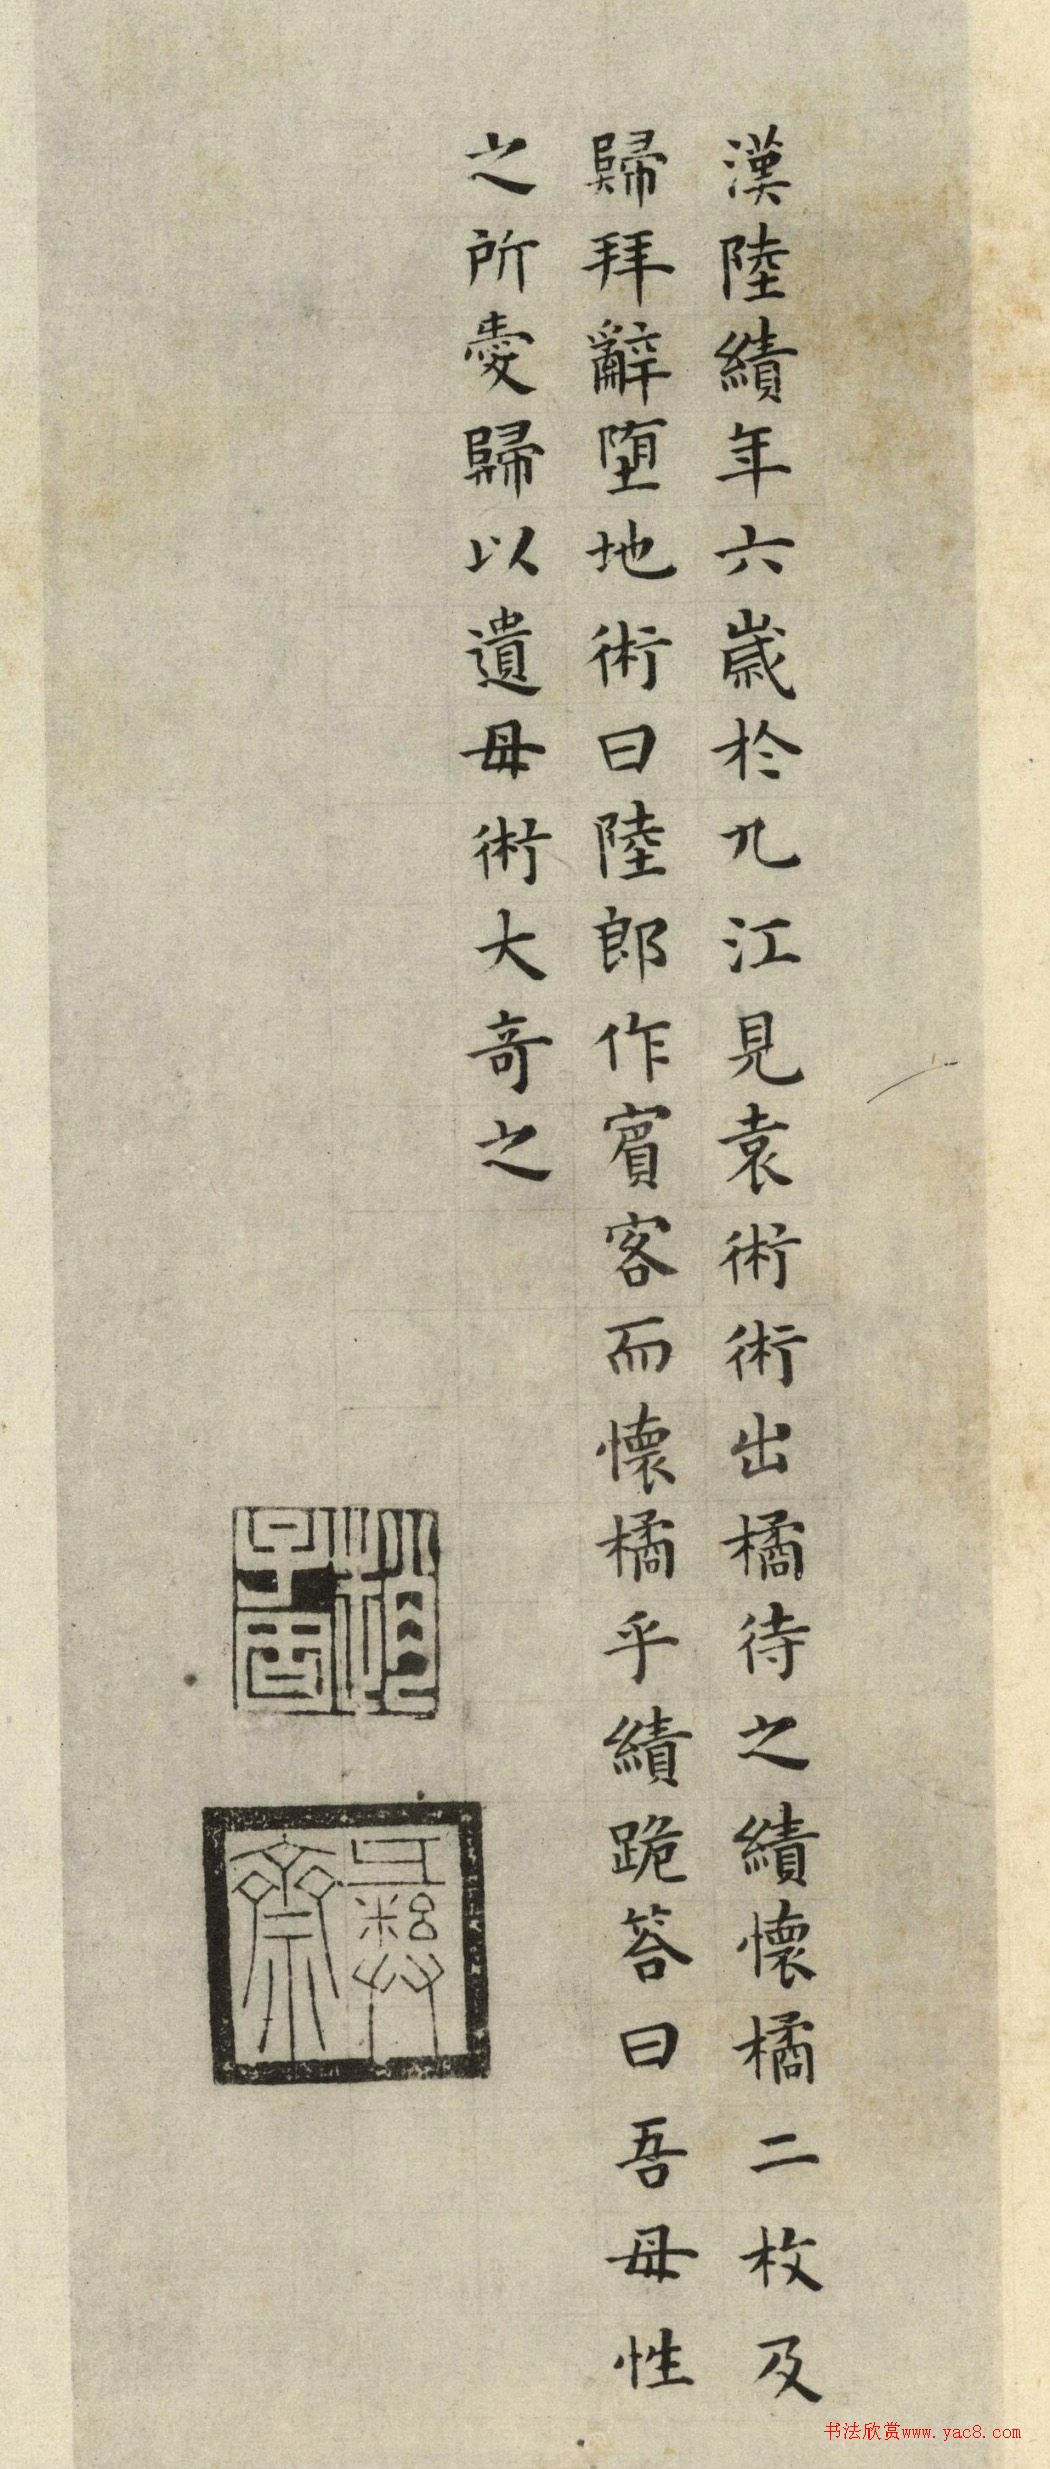 漢陸績年六歲於九江見袁術術出橘待之績懷橘二枚及
歸拜辭墮地術曰陸郎作賓客而懷橘乎績跪荅曰吾母性
之所愛歸以遺母術大奇之
彝齋
书法欣赏www.yac8.com